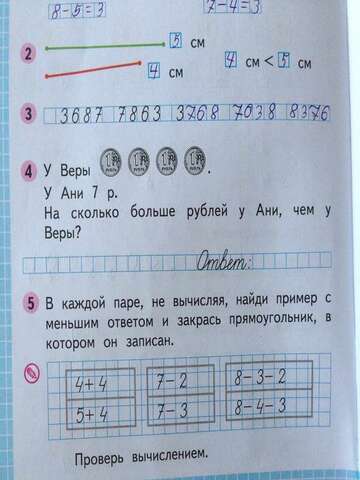 8-5=3 7-4=3
2 5 см
4 см 4 см < 5 см
3 3687 7863 3768 7038 8376
4 У Веры 1 РУБЛЬ 1 РУБЛЬ 1 РУБЛЬ 1 РУБЛЬ .
У Ани 7 р.
На сколько больше рублей у Ани, чем у
Веры?
Ответ:
5 В каждой паре, не вычисляя, найди пример с
меньшим ответом и закрась прямоугольник, в
котором он записан.
4+4 7-2 8-3-2
5+4 7-3 8-4-3
Проверь вычислением.